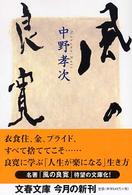 風の
良寛
中野孝次
衣食住、金、プライド、
すべて捨ててこそ……
良寛に学ぶ「人生が楽になる」生き方
名著『風の良寛』待望の文庫化!
文春文庫 今月の新刊